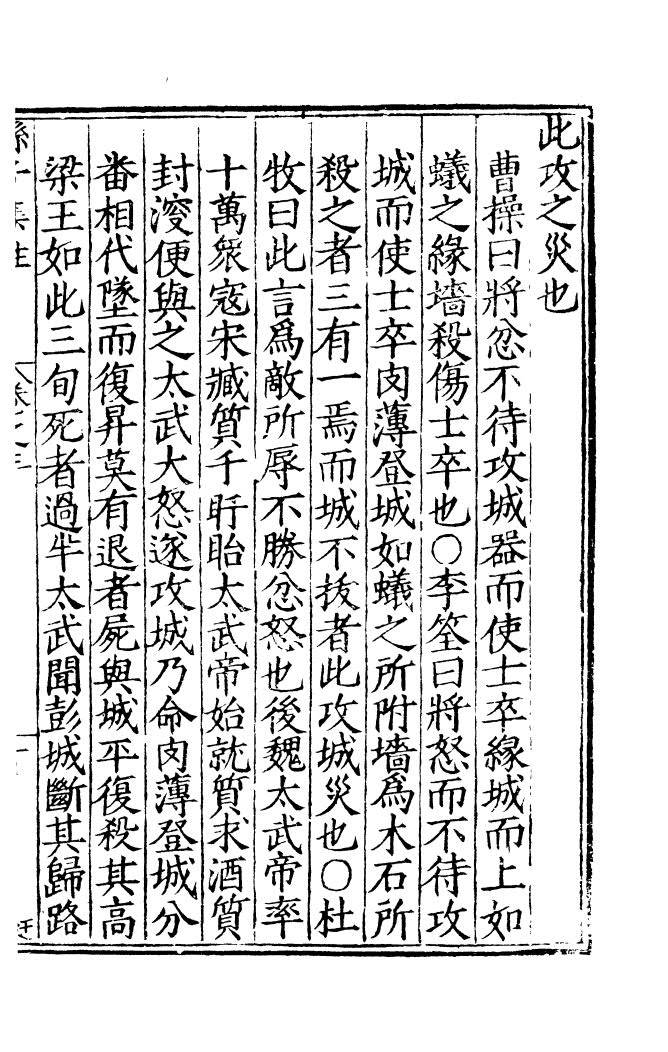 此攻之災也
曹操曰將忿不待攻城器而使士卒緣城而上如
蟻之緣墻殺傷士卒也○李筌曰將怒而不待攻
城而使士卒肉薄登城如蟻之所附墻爲木石所
殺之者三有一焉而城不拔者此攻城災也○杜
牧曰此言爲敵所辱不勝忿怒也後魏太武帝率
十萬衆寇宋臧質于盱眙太武帝始就質求酒質
封溲便與之太武大怒遂攻城乃命肉薄登城分
番相代墜而復昇莫有退者屍與城平復殺其高
梁王如此三旬死者過半太武聞彭城斷其歸路
孫子集註 卷之三